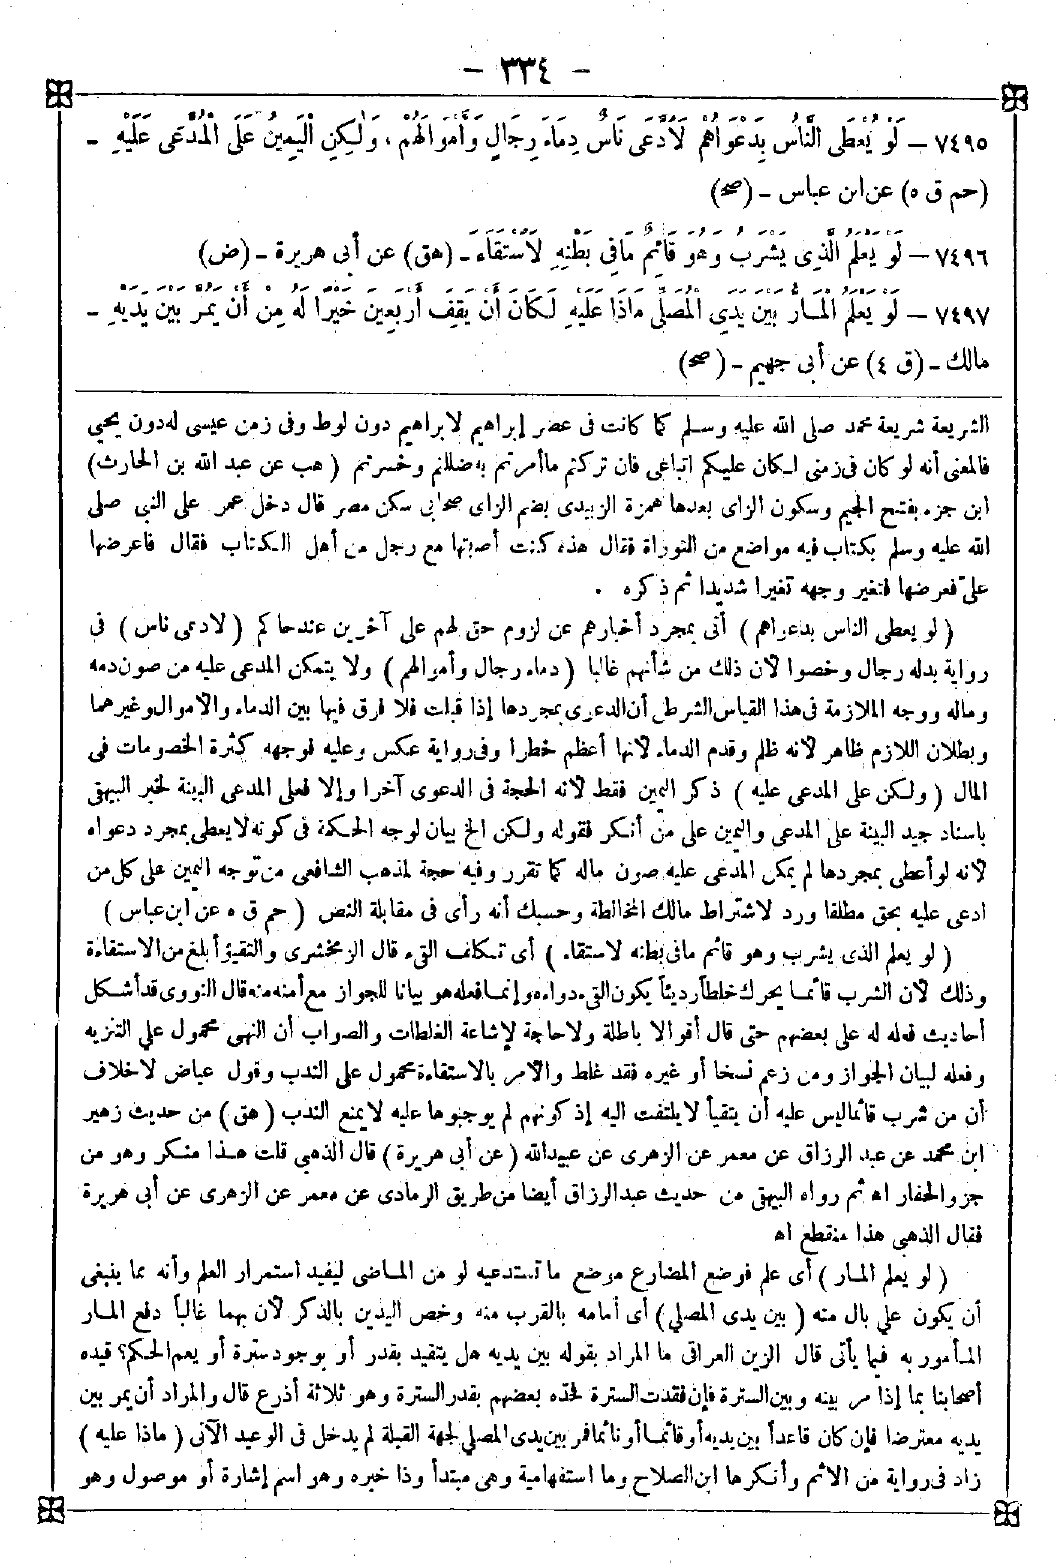 - ٣٣٤ -
٧٤٩٥ - لَوْ يُعْطَى النَّاسُ بِدَعْوَاهُمْ لَادَّعَى نَاسٌ دِمَاءَ رِجَالٍ وَأَمْوَالَهُمْ ، وَلَكِنِ الْيَمِينُ عَلَى الْمُدَّعَى عَلَيْهِ -
(حم ق ه) عن ابن عباس - (صح)
٧٤٩٦ - لَوْ يَعْلَمُ الَّذِى يَشْرَبُ وَهُوَ قَائِمٌ مَافِى بَطْنِهِ لَاسْتَقَاءَ - (هق) عن أبى هريرة - (ض)
٧٤٩٧ - لَوْ يَعْلَمُ الْمَارُّ بَيْنَ يَدَىِ الْمُصَلِّى مَاذَا عَلَيْهِ لَكَانَ أَنْ يَقِفَ أَرْبَعِينَ خَيْرًا لَهُ مِنْ أَنْ يَمُرَّ بَيْنَ يَدَيْهِ -
مالك - (ق ٤) عن أبى جهيم - (صح)
الشريعة شريعة محمد صلى الله عليه وسلم كما كانت فى عصر إبراهيم لابراهيم دون لوط وفى زمن عيسى له دون يحيى
فالمعنى أنه لو كان فى زمنى لكان عليكم اتباعى فان تركتم ما أمرتم به ضللتم وخسرتم ( هب عن عبد الله بن الحارث)
ابن جزء بفتح الجيم وسكون الزاى بعدها همزة الزبيدى بضم الزاى صحابى سكن مصر قال دخل عمر على النبى صلى
الله عليه وسلم بكتاب فيه مواضع من التوراة فقال هذه كنت أصبتها مع رجل من أهل الكتاب فقال فاعرضها
علىّ فعرضها فتغير وجهه تغيرا شديدا ثم ذكره .
( لو يعطى الناس بدعواهم ) أى بمجرد أخبارهم عن لزوم حق لهم على آخرين عند حاكم ( لادعى ناس ) فى
رواية بدله رجال وخصوا لأن ذلك من شأنهم غالبا ( دماء رجال وأموالهم ) ولا يتمكن المدعى عليه من صون دمه
وماله ووجه الملازمة فى هذا القياس الشرطى أن الدعوى بمجردها إذا قبلت فلا فرق فيها بين الدماء والأموال وغيرهما
وبطلان اللازم ظاهر لأنه ظلم وقدم الدماء لأنها أعظم خطرا وفى رواية عكس وعليه فوجهه كثرة الخصومات فى
المال ( ولكن على المدعى عليه ) ذكر اليمين فقط لأنه الحجة فى الدعوى آخرا وإلا فعلى المدعى البينة لخبر البيهقى
باسناد جيد البينة على المدعى واليمين على من أنكر فقوله ولكن الخ بيان لوجه الحكمة فى كونه لا يعطى بمجرد دعواه
لأنه لو أعطى بمجردها لم يمكن المدعى عليه صون ماله كما تقرر وفيه حجة لمذهب الشافعى من توجه اليمين على كل من
ادعى عليه بحق مطلقا ورد لاشتراط مالك المخالطة وحسبك أنه رأى فى مقابلة النص ( حم ق ه عن ابن عباس )
( لو يعلم الذى يشرب وهو قائم مافى بطنه لاستقاء ) أى تكلف القىء قال الزمخشرى والتقيؤ أبلغ من الاستقاءة
وذلك لأن الشرب قائما يحرك خلطا رديئاً يكون القىء دواءه وإنما فعله هو بيانا للجواز مع أمنه منه قال النووى قد أشكل
أحاديث فعله له على بعضهم حتى قال أقوالا باطلة ولا حاجة لإشاعة الغلطات والصواب أن النهى محمول على التنزيه
وفعله لبيان الجواز ومن زعم نسخا أو غيره فقد غلط والأمر بالاستقاءة محمول على الندب وقول عياض لاخلاف
أن من شرب قائما ليس عليه أن يتقيأ لا يلتفت اليه إذ كونهم لم يوجبوها عليه لا يمنع الندب ( هق ) من حديث زهير
ابن محمد عن عبد الرزاق عن معمر عن الزهرى عن عبيد الله ( عن أبى هريرة ) قال الذهبى قلت هذا منكر وهو من
جزء الحفار اه ثم رواه البيهقى من حديث عبد الرزاق أيضا من طريق الرمادى عن معمر عن الزهرى عن أبى هريرة
فقال الذهبى هذا منقطع اه
( لو يعلم المار ) أى علم فوضع المضارع موضع ما تستدعيه لو من الماضى ليفيد استمرار العلم وأنه مما ينبغى
أن يكون على بال منه ( بين يدى المصلى ) أى أمامه بالقرب منه وخص اليدين بالذكر لأن بهما غالباً دفع المار
المأمور به فيما يأتى قال الزين العراقى ما المراد بقوله بين يديه هل يتقيد بقدر أو بوجود سترة أو يعم الحكم؟ قيده
أصحابنا بما إذا مر بينه وبين السترة فإن فقدت السترة لحده بعضهم بقدر السترة وهو ثلاثة أذرع قال والمراد أن يمر بين
يديه معترضا فإن كان قاعداً بين يديه أو قائما أو نائما فمر بين يدى المصلى لجهة القبلة لم يدخل فى الوعيد الآتى ( ماذا عليه )
زاد فى رواية من الاثم وأنكرها ابن الصلاح وما استفهامية وهى مبتدأ وذا خبره وهو اسم إشارة أو موصول وهو